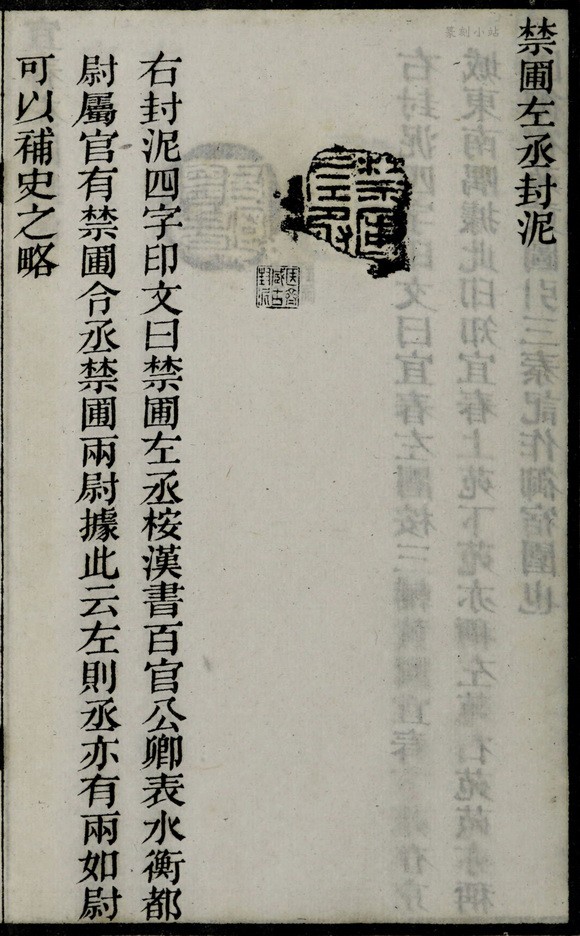 禁圃左丞封泥
篆刻小站
右封泥四字印文曰禁圃左丞桉漢書百官公卿表水衡都
尉屬官有禁圃令丞禁圃兩尉據此云左則丞亦有兩如尉
可以補史之略